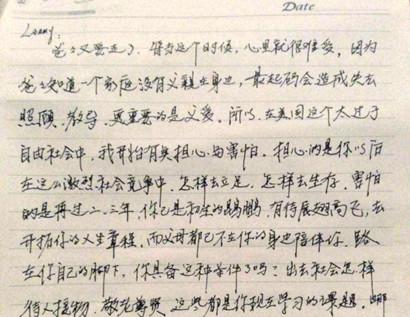 Date
Lenny:
爸々又要走了. 每当这个时候, 心里就很难受, 因为
爸々知道一个家庭没有父亲在身边, 最起码会造成失去
照顾、教导, 更重要的是父爱. 所以, 在美国这个太过于
自由社会中, 我开始有些担心与害怕. 担心的是你以后
在这么激烈社会竞争中, 怎样去立足, 怎样去生存. 害怕
的是再过二、三年, 你已是初生的鹏, 有待展翅高飞, 去
开拓你的人生章程, 而父母都已不在你的身边陪伴你. 路
在你自己的脚下, 你具备这种条件了吗? 出去社会怎样
待人接物, 敬老尊贤, 这些都是你现在学习的课题. 哪